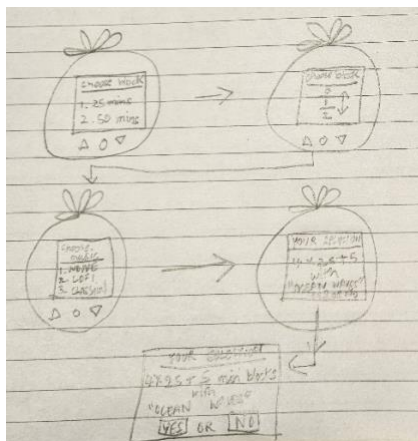 choose block
1. 25 mins
2. 50 mins
choose block
0
1
2
choose
music
1. NONE
2. LOFI
3. CLASSICAL
YOUR SELECTION
4 x 25 + 5
with
"OCEAN WAVES"
YOUR SELECTION
4x25 + 5 min blocks
with
"OCEAN WAVES"
YES OR NO